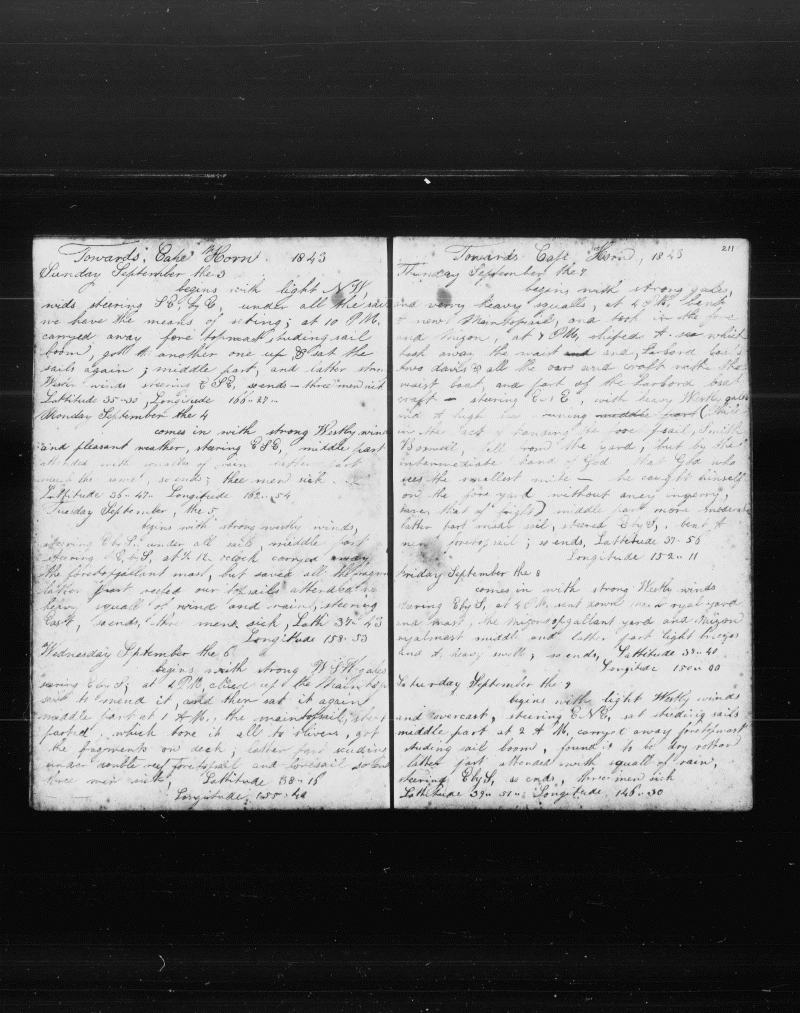 Towards Cape Horn 1843
Sunday September the 3
begins with light N.W.
winds, steering SE. by E under all the sail
we have the means of setting; at 10 P.M.
carryed away fore topmast studing sail
boom, got another one up & sat the
sails again; middle part, and latter strong
West winds steering ESE, so ends – three men sick
Lattitude 35 " Longitude 166 " 27 "
Monday September the 4
comes in with strong Westly winds
and pleasant weather, steering ESE, middle part
attended with squalls of rain latter part
much the same, so ends; three men sick
Lattitude 36 " 47 " Longitude 162 " 54
Tuesday September, the 5,
begins with strong westly winds,
steering E by S. under all sails middle part
steering E. by S, at ½ 12 oclock carryed away
the foretopgallant mast, but saved all the
latter part reefed our topsails attended with
heavy squall of wind and rain, steering
East, so ends, three men sick, Latt 37 " 43
Longitude 158 " 53
Wednesday September the 6
begins with strong W.S.W. gales
steering E by S; at 2 P.M. clued up the Main topsail
sent to mend it, and then sat it again
middle part at 1 A.M., the maintopsail, sheet
parted, which tore it all to rivens, got
the fragments on deck; latter part scuding
under double reef foretopsail and foresail so ends
three men sick Lattitude 38 " 16
Longitude, 155 " 40
211
Towards Cape Horn, 1843
Thursday September the 7
begins with strong gales,
and verry heavy squalls, at 4 P.M. bent
a new Maintopsail, and took in the fore
and Mizon, at 8 P.M. shiped A sea which
took away the waist and and Larbord boats
two davis & all the oars and craft with the
waist boat, and part of the Larbord boat
craft – steering E, with heavy Westly gales
and A high sea running middle part (While
in the act of handing the foresail, Smith
fell from the yard, but by the
intermediate hand of God that God who
sees the smallest mite – he caught himself
on the fore yard without aney ingery,
save that of fright) middle part more moderate
latter part made sail, steered E by S, bent A
new foretopsail; so ends, Lattitude 37 " 56
Longitude 152 " 11
Friday September the 8
comes in with strong Westly winds
stering E by S, at 4 P.M. sent down main royal yard
and mast, the mizontopgallant yard and Mizon
royalmast middle and latter part light breezes
and A heavy swell; so ends, Lattitude 38 " 40
Longitude 150 " 00
Saturday September the 9
begins with light Westly winds
and overcast, steering E.N.E, sat studing sails
middle part at 2 A.M. carryed away foretopmast
studing sail boom, found it to be dry rotten
latter part attended with squalls of rain,
steering E by S, so ends, three men sick
Lattitude 39 " 51 " Longitude, 146 " 30